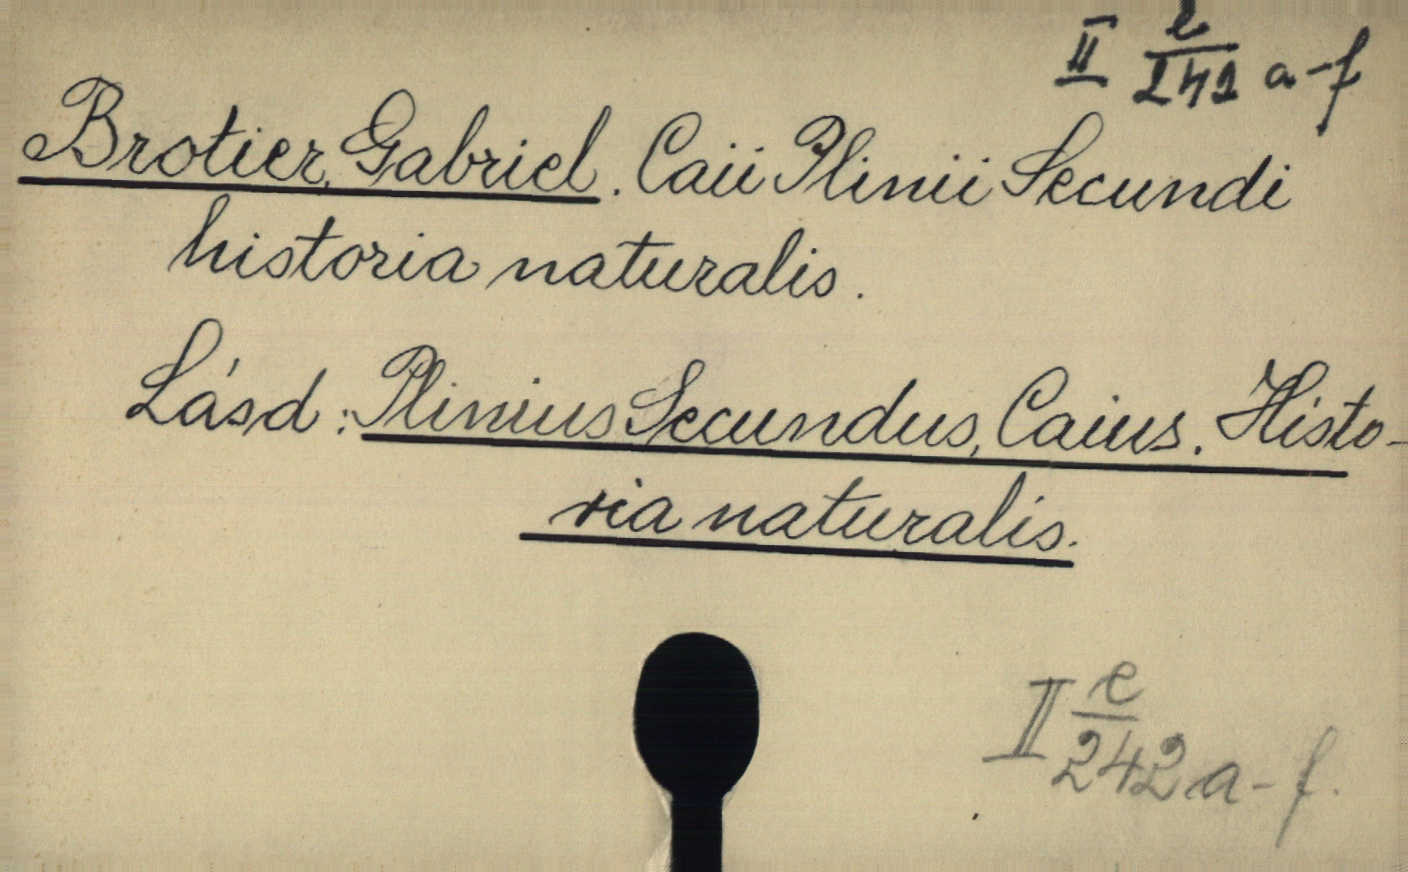 II e/242 a-f
Brotier, Gabriel. Caii Plinii Secundi
historia naturalis.
Lásd: Plinius Secundus, Caius. Histo-
ria naturalis.
II e/242 a-f.